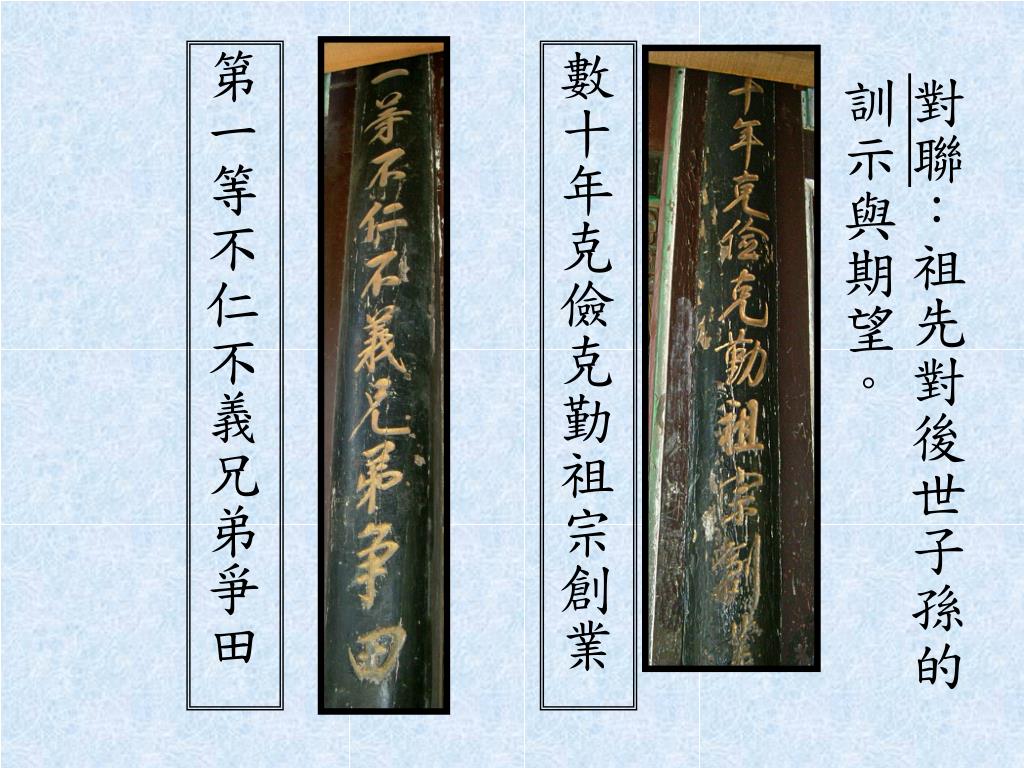 對聯：祖先對後世子孫的
訓示與期望。
十年克儉克勤祖宗創業
數十年克儉克勤祖宗創業
一等不仁不義兄弟爭田
第一等不仁不義兄弟爭田